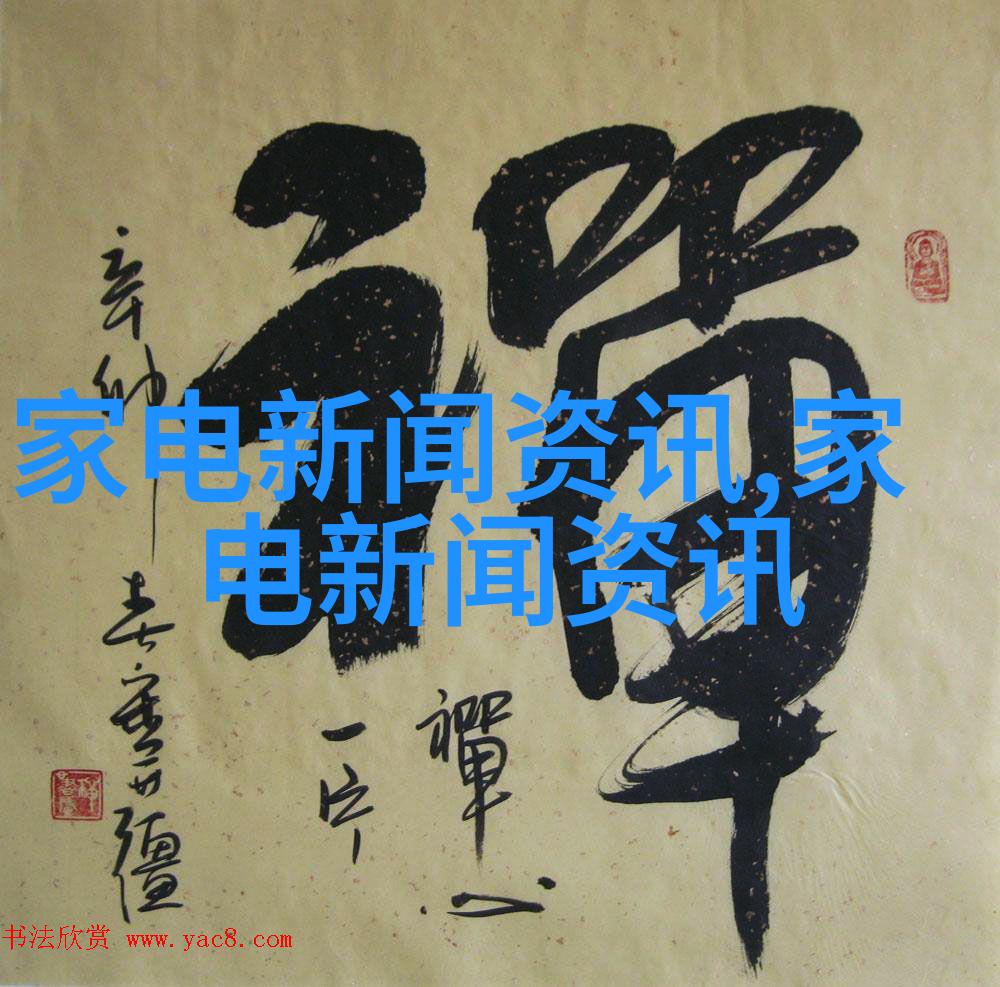 禪
禪心
一片
辛卯
春
家电新闻资讯,家
电新闻资讯
书法欣赏 www.yac8.com